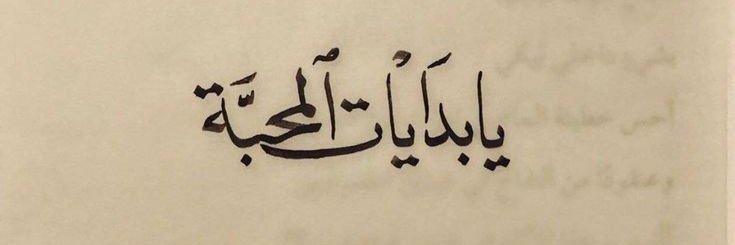 يا بدَايات ٱلمحبَّة